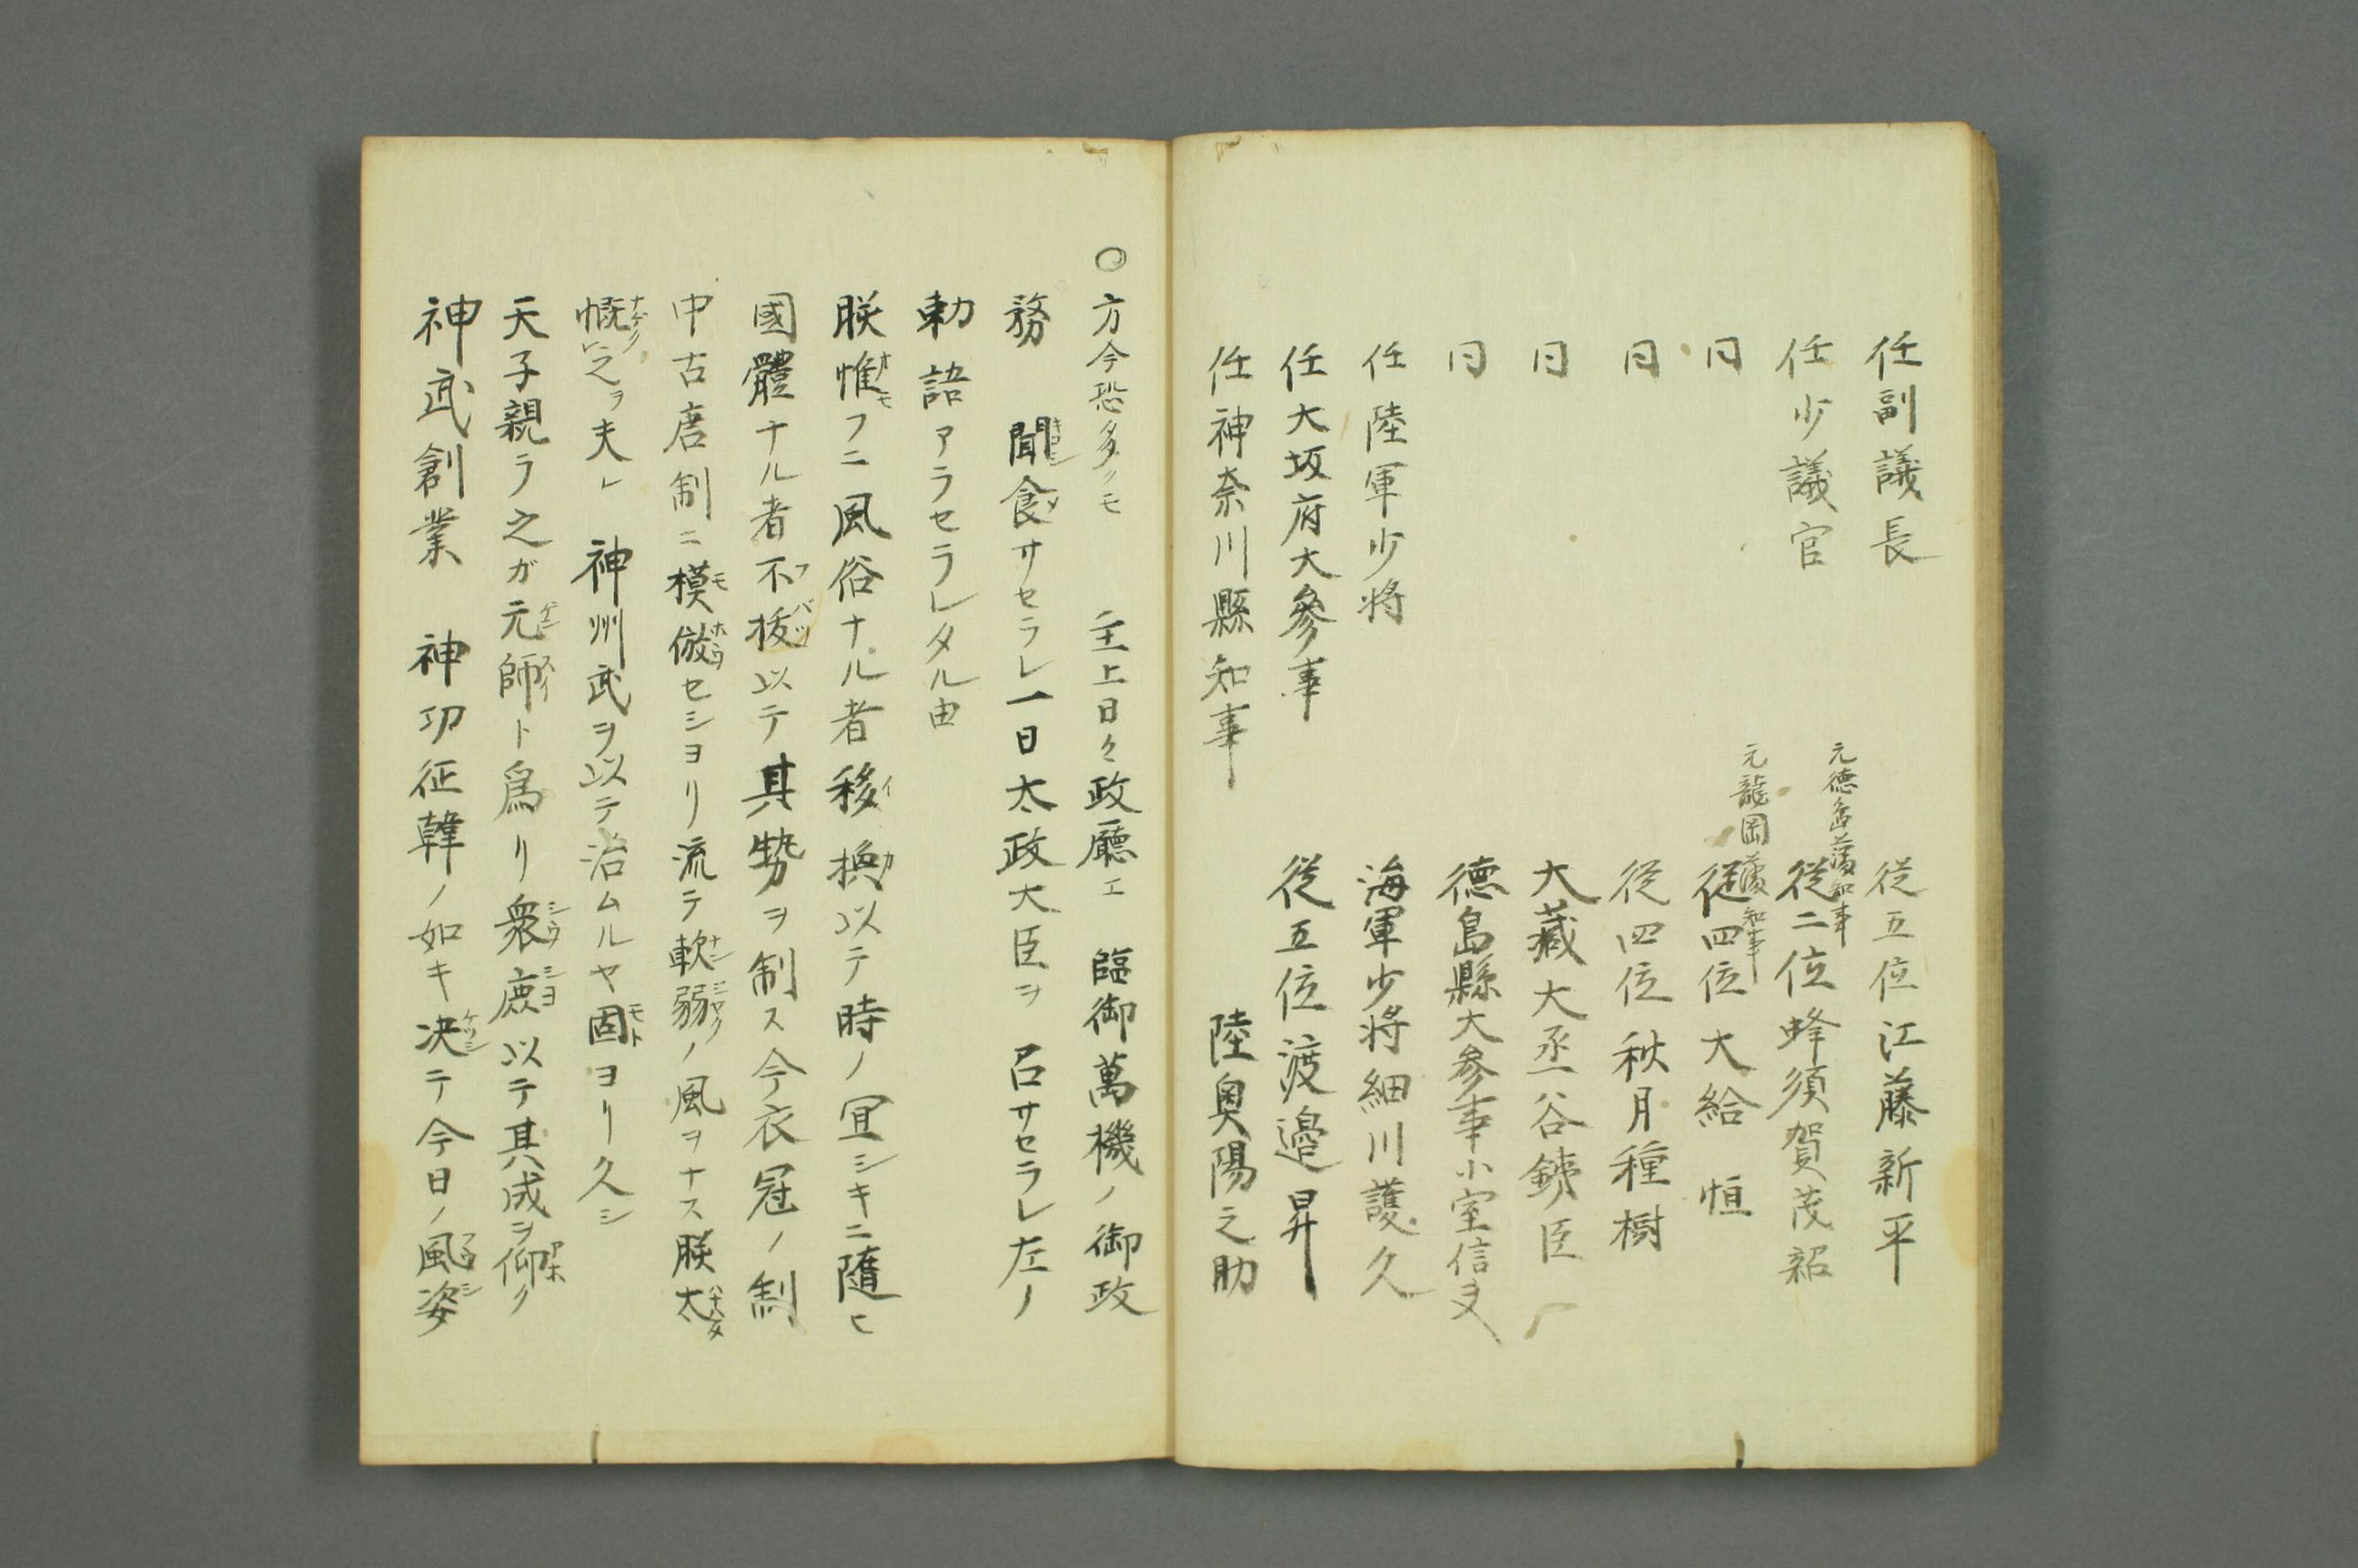 任副議長 従五位 江藤新平
元徳島藩知事
任少議官 従二位 蜂須賀茂韶
元龍岡藩知事
同 従四位 大給 恒
同 従四位 秋月種樹
同 大蔵大丞 谷鉄臣
同 徳島縣大参事 小室信夫
任陸軍少将 海軍少将 細川護久
任大坂府大參事 従五位 渡邉昇
任神奈川縣知事 陸奥陽之助
○方今恐多クモ 主上日々政廳エ 臨御萬機ノ御政
務 聞食サセラレ一日太政大臣ヲ召サセラレ左ノ
勅語アラセラレタル由
朕惟フニ風俗ナル者移換以テ時ノ宜シキニ隨ヒ
國體ナル者不抜以テ其勢ヲ制ス今衣冠ノ制
中古唐制ニ模倣セシヨリ流テ軟弱ノ風ヲナス朕太
慨之ヲ夫レ 神州武ヲ以テ治ムルヤ固ヨリ久シ
天子親ラ之ガ元師ト為リ衆庶以テ其成ヲ仰ク
神武創業 神功征韓ノ如キ決テ今日ノ風姿